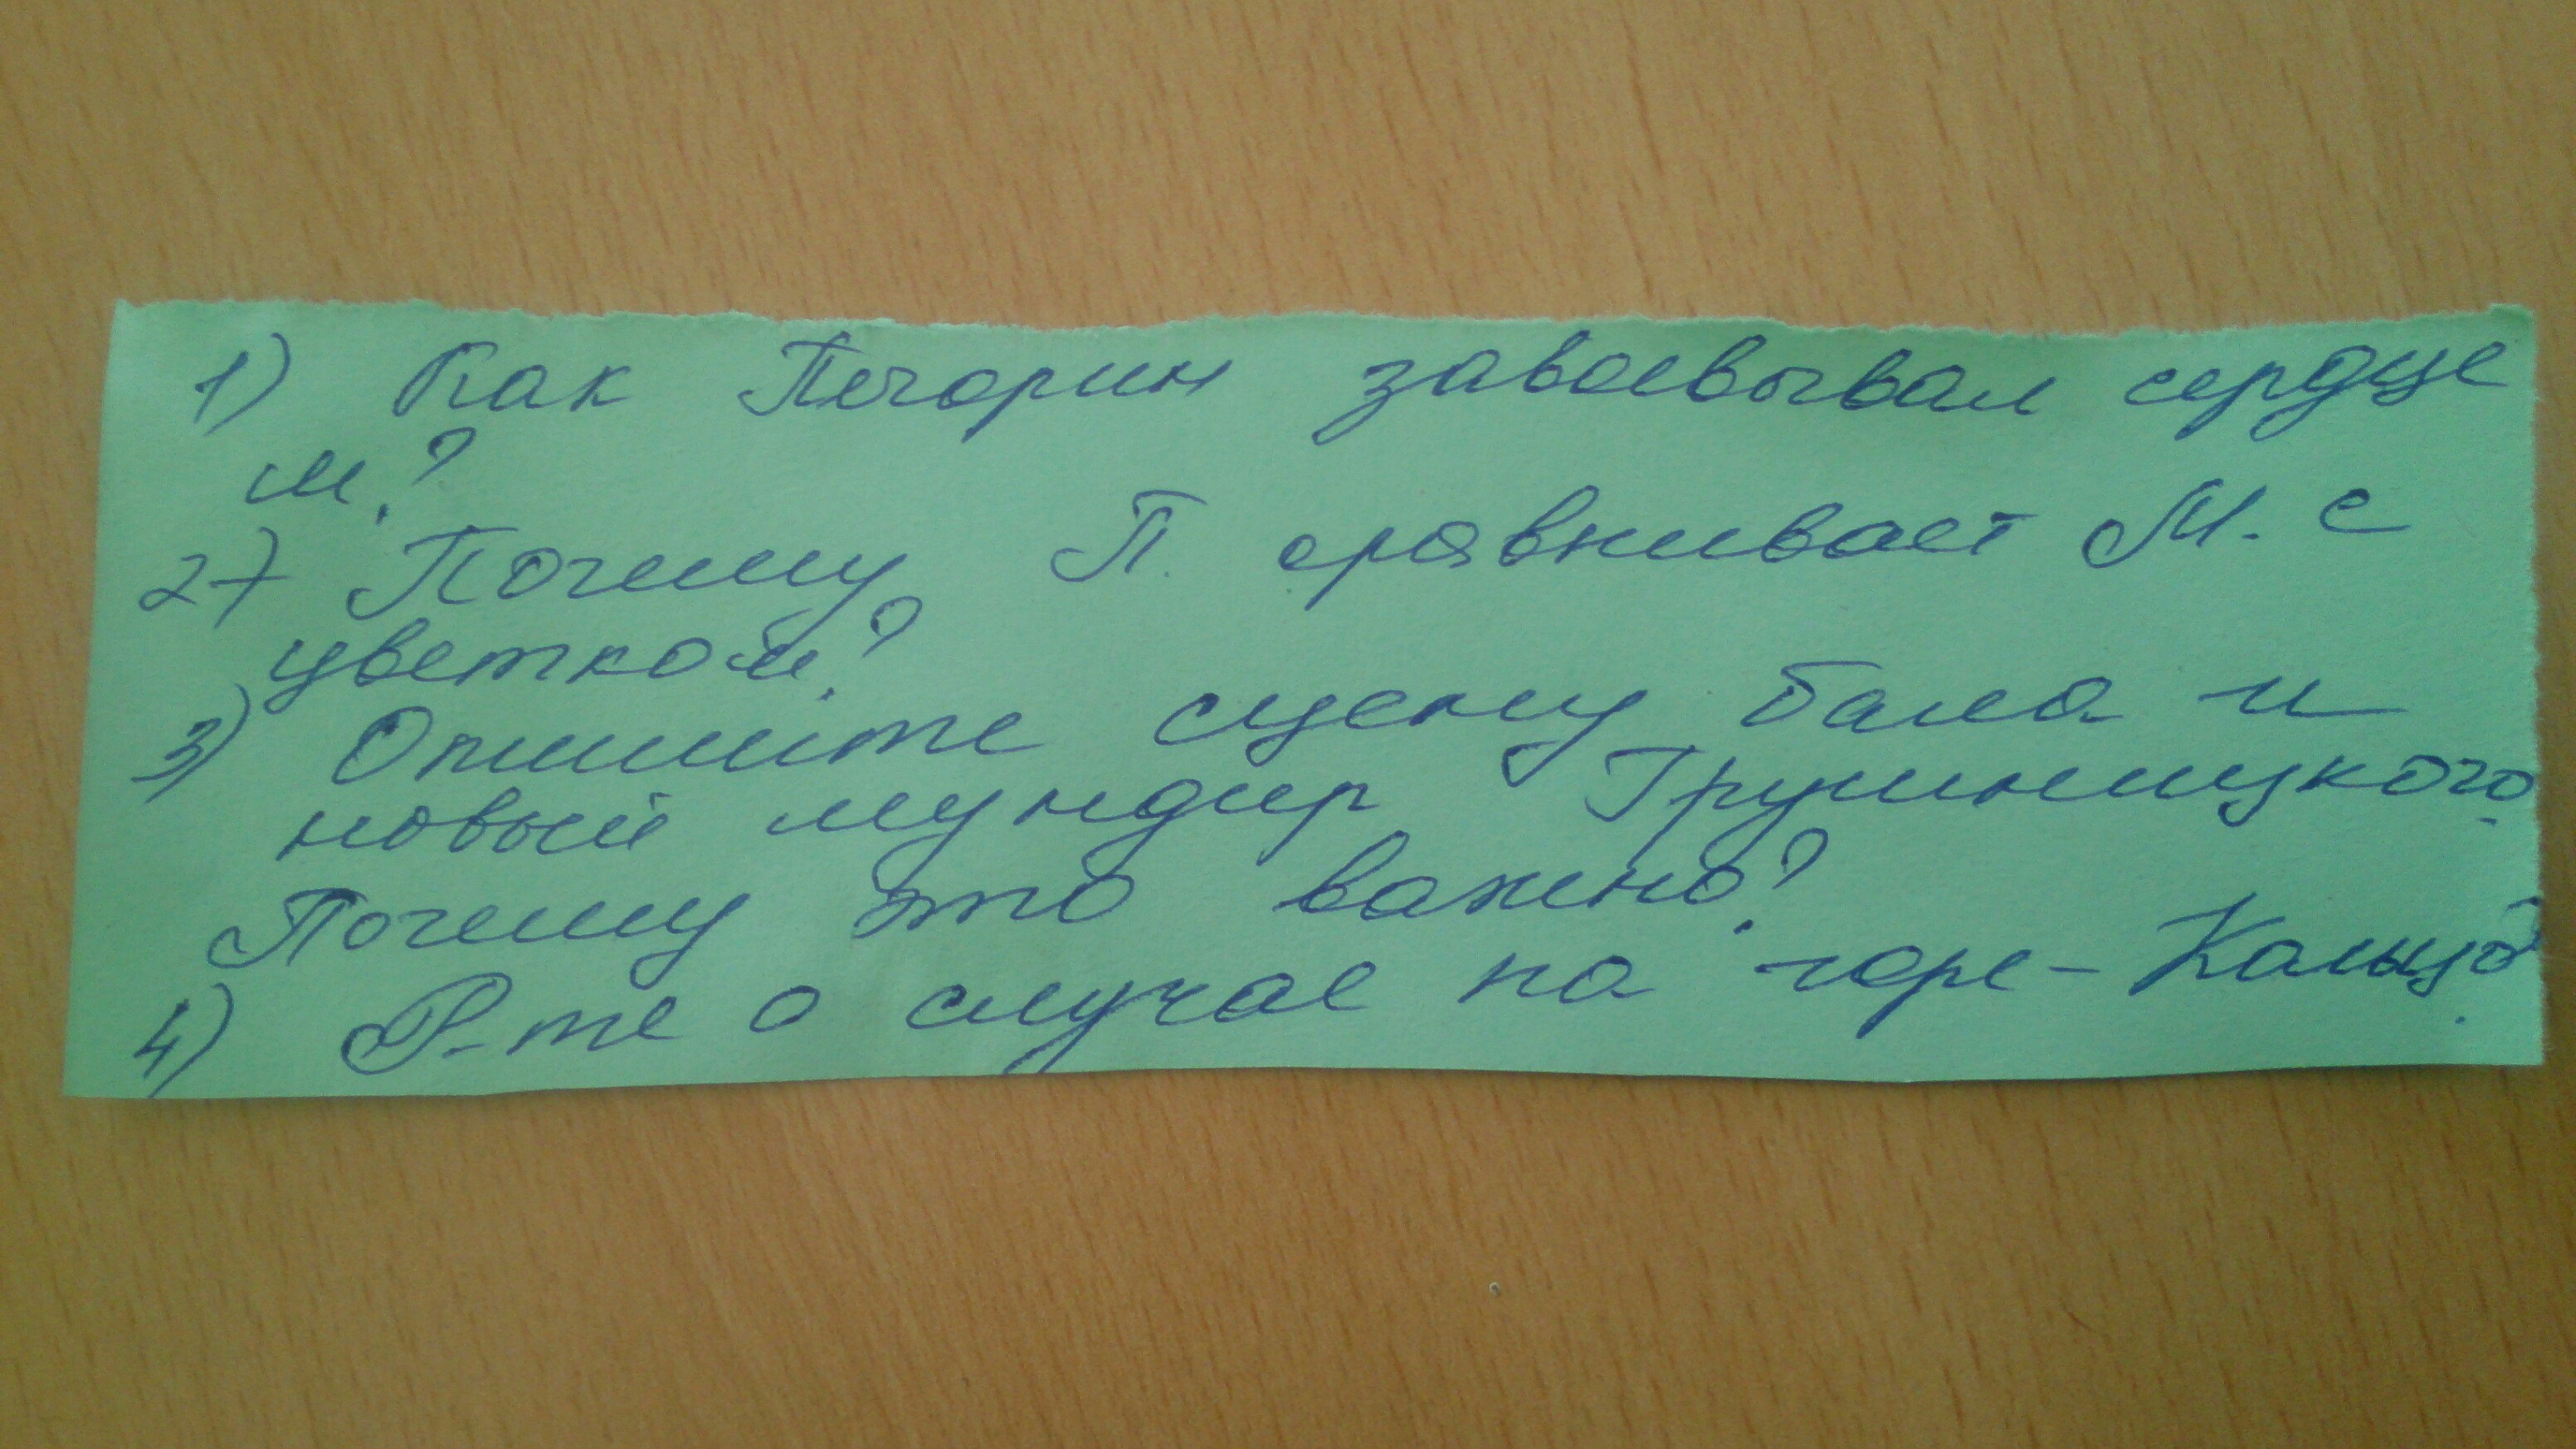 1) Как Печорин завоевывал сердце
М.?
2) Почему П. сравнивает М. с
цветком?
3) Опишите сцену бала и
новый мундир Грушницкого.
Почему это важно?
4) Р-те о случае на горе-Кольцо.